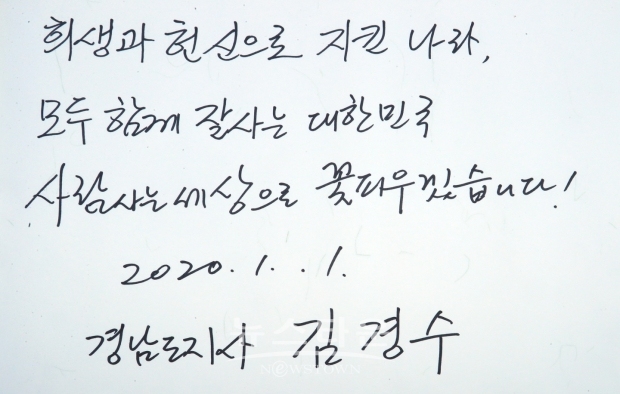 희생과 헌신으로 지킨 나라,
모두 함께 잘사는 대한민국
사람사는세상으로 꽃피우겠습니다!
2020. 1. . 1.
경남도지사 김경수
뉴스타운
NEWSTOWN